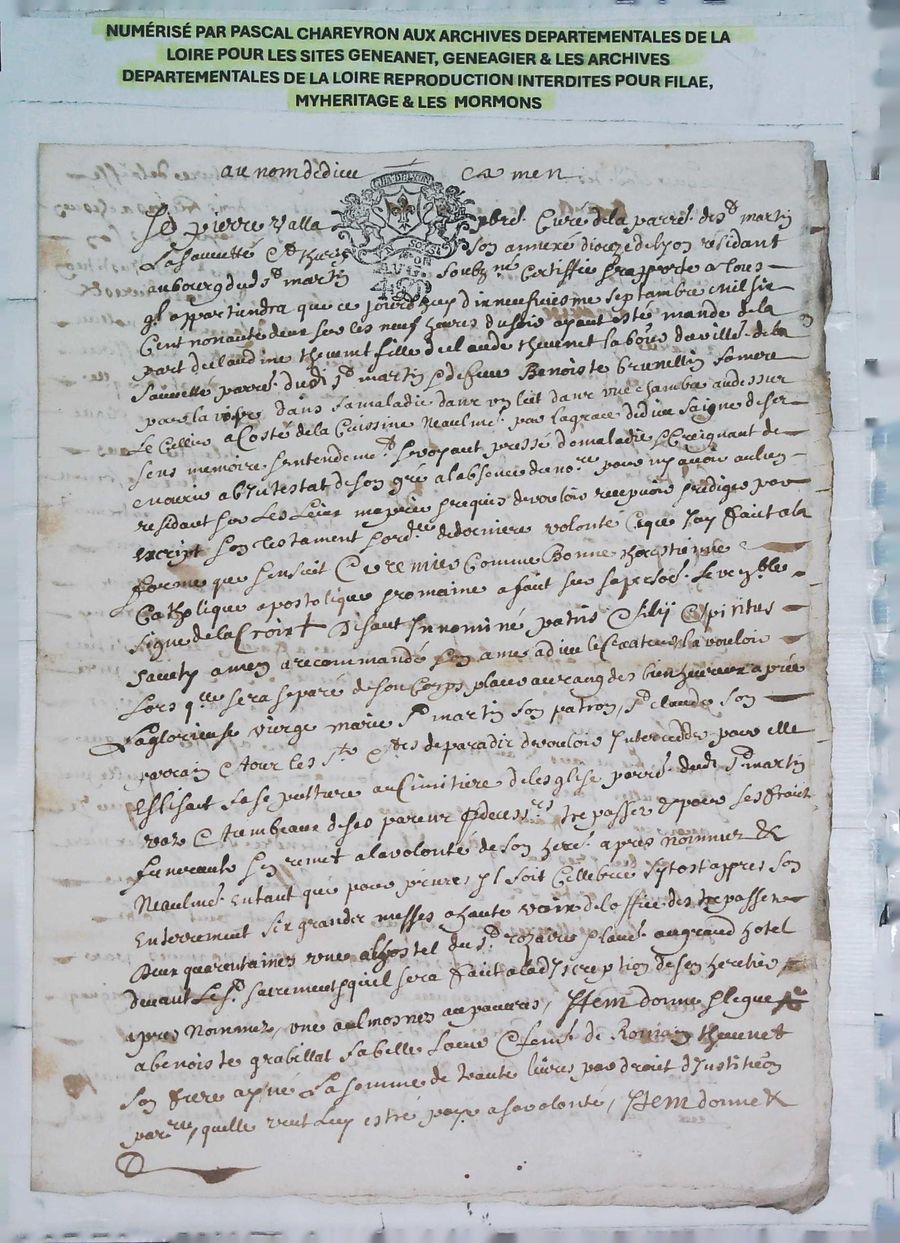 NUMÉRISÉ PAR PASCAL CHAREYRON AUX ARCHIVES DEPARTEMENTALES DE LA
LOIRE POUR LES SITES GENEANET, GENEAGIER & LES ARCHIVES
DEPARTEMENTALES DE LA LOIRE REPRODUCTION INTERDITES POUR FILAE,
MYHERITAGE & LES MORMONS
au nom de dieu amen
Je pierre Valla pbre Cure de la parre de St martin
La sauuetté son annexe dioceze de lyon residant
au bourg dud St martin soubzne Certiffie & rapporte a tous
ql appartiendra que ce jourdhuy dixneufuiesme septambre mil six
Cent nonante deux sur les neuf heures du soir ayant esté mandé de la
part de claudine theuenet fille de claude theuenet labour du villé de la
sauuetté parre dudt St martin & deffue Benoiste brunellin sa mere
pour la voir dans sa maladie dans un lict dans une chambre au dessus
Le Cellier a Costé de la Cuissine Neaulmt par la grace de dieu saigne de ses
sens memoire & entendemt se voyant pressé de maladie & Craignant de
mourir abintestat de son gré a l'absence de nore pour ny auoir aulcun
residant sur Les Lieux ma prié & requis de vouloir recepuoir & rediger par
escript son testament & ordce de derniere volonté Ce que Jay faict a la
forme que sensuit Et premier Comme Bonne chrestienne
Catholique apostolique & romaine a faict sur sa persone Le venble
signe de la Croix + disant In nomine patris & filij & spiritus
sancty amen a recommandé son ame a dieu le Createur la vouloir
Lors qlle sera separé de son Corps placer au rang des bien heureux a priée
La glorieuse vierge marie St martin son patron, St claude son
& tous les sts & stes de paradis de vouloir Interceder pour elle
Eslisant sa sepulture au Cimitiere de leglise parre dudt St martin
& tumbeaux de ses parens & predecessrs trepasses & pour ses fraict
funeraulx sen remet a la volonté de son here apres nommez &
Neaulmt Entant que pour prieres Il soit Cellebrée sytost apres son
Enterrement six grandes messes a haute voix de loffice des trepasses
deux quarentaines une a lhostel du St rozaire & laue au grand hotel
deuant Le St sacrement quil sera faict a la discreption de son heretier
apres Nommez, une aulmosnes au pauures, Item donne & legue
a benoiste grabillat sa belle soeur & feme de Romain theuenet
son frere ayné La somme de trante liures par droict dinstitution
parre, quelle veut luy estre payé a sa volonté, Item donne &